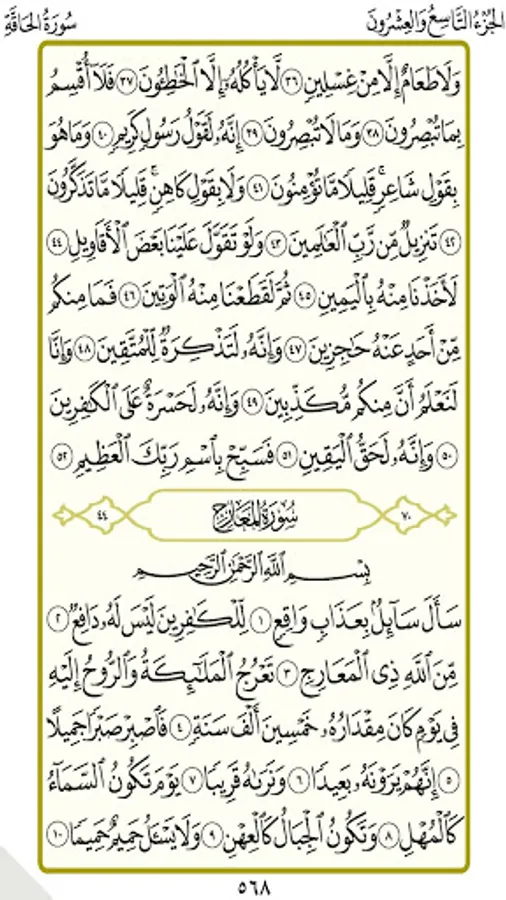 الجزء التاسع والعشرون سورة الحاقة
وَلَا طَعَامٌ إِلَّا مِنْ غِسْلِينٍ ٣٦ لَّا يَأْكُلُهُۥٓ إِلَّا ٱلْخَٰطِـُٔونَ ٣٧ فَلَآ أُقْسِمُ
بِمَا تُبْصِرُونَ ٣٨ وَمَا لَا تُبْصِرُونَ ٣٩ إِنَّهُۥ لَقَوْلُ رَسُولٍ كَرِيمٍ ٤٠ وَمَا هُوَ
بِقَوْلِ شَاعِرٍ ۚ قَلِيلًا مَّا تُؤْمِنُونَ ٤١ وَلَا بِقَوْلِ كَاهِنٍ ۚ قَلِيلًا مَّا تَذَكَّرُونَ
٤٢ تَنزِيلٌ مِّن رَّبِّ ٱلْعَٰلَمِينَ ٤٣ وَلَوْ تَقَوَّلَ عَلَيْنَا بَعْضَ ٱلْأَقَاوِيلِ ٤٤
لَأَخَذْنَا مِنْهُ بِٱلْيَمِينِ ٤٥ ثُمَّ لَقَطَعْنَا مِنْهُ ٱلْوَتِينَ ٤٦ فَمَا مِنكُم
مِّنْ أَحَدٍ عَنْهُ حَٰجِزِينَ ٤٧ وَإِنَّهُۥ لَتَذْكِرَةٌ لِّلْمُتَّقِينَ ٤٨ وَإِنَّا
لَنَعْلَمُ أَنَّ مِنكُم مُّكَذِّبِينَ ٤٩ وَإِنَّهُۥ لَحَسْرَةٌ عَلَى ٱلْكَٰفِرِينَ
٥٠ وَإِنَّهُۥ لَحَقُّ ٱلْيَقِينِ ٥١ فَسَبِّحْ بِٱسْمِ رَبِّكَ ٱلْعَظِيمِ ٥٢
٧٠ سورة المعارج ٤٤
بِسْمِ ٱللَّهِ ٱلرَّحْمَٰنِ ٱلرَّحِيمِ
سَأَلَ سَآئِلٌۢ بِعَذَابٍ وَاقِعٍ ١ لِّلْكَٰفِرِينَ لَيْسَ لَهُۥ دَافِعٌ ٢
مِّنَ ٱللَّهِ ذِى ٱلْمَعَارِجِ ٣ تَعْرُجُ ٱلْمَلَٰٓئِكَةُ وَٱلرُّوحُ إِلَيْهِ
فِى يَوْمٍ كَانَ مِقْدَارُهُۥ خَمْسِينَ أَلْفَ سَنَةٍ ٤ فَٱصْبِرْ صَبْرًا جَمِيلًا
٥ إِنَّهُمْ يَرَوْنَهُۥ بَعِيدًا ٦ وَنَرَىٰهُ قَرِيبًا ٧ يَوْمَ تَكُونُ ٱلسَّمَآءُ
كَٱلْمُهْلِ ٨ وَتَكُونُ ٱلْجِبَالُ كَٱلْعِهْنِ ٩ وَلَا يَسْـَٔلُ حَمِيمٌ حَمِيمًا ١٠
٥٦٨